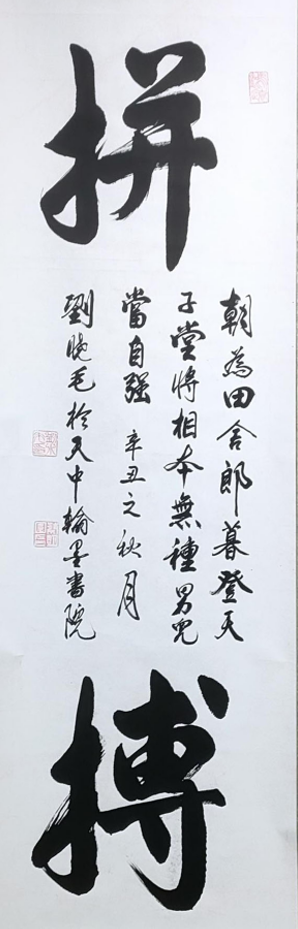 拼
搏
朝為田舍郎暮登天
子堂將相本無種男兒
當自強 辛丑之秋月
劉曉毛於天中翰墨書院